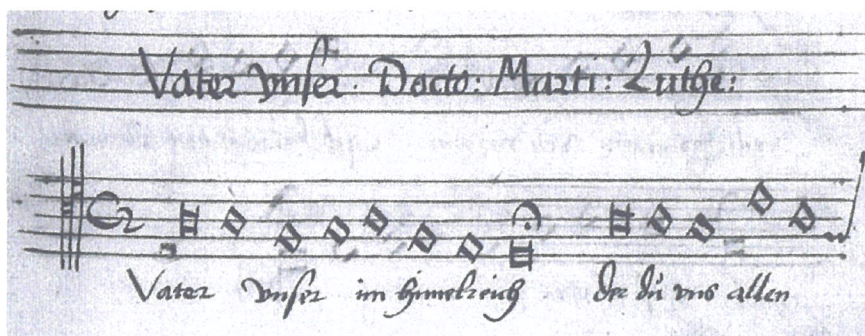 Vater vnser . Docto : Marti : Luthe :
Vater vnser im himelreich der du vns allen